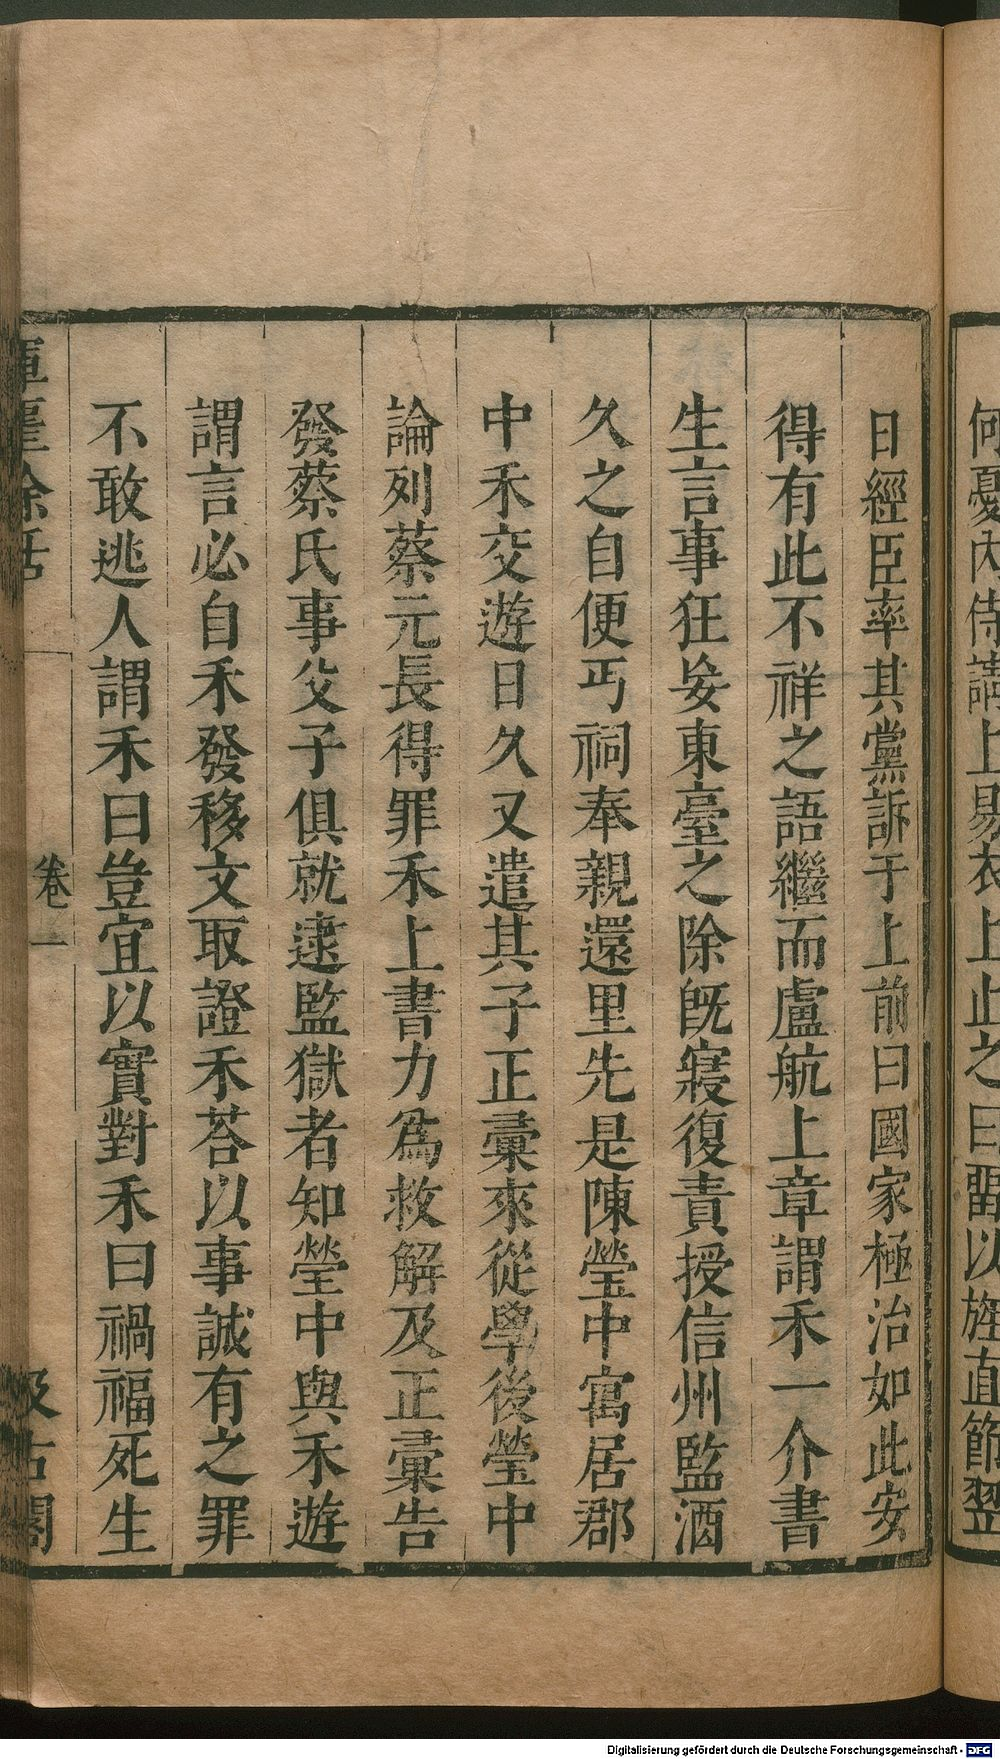 何憂內侍請上易衣上止之曰留以旌直節翌
日經臣率其黨訴于上前曰國家極治如此安
得有此不祥之語繼而盧航上章謂禾一介書
生言事狂妄東臺之除旣寢復責授信州監酒
久之自便丐祠奉親還里先是陳瑩中寓居郡
中禾交遊日久又遣其子正彙來從學後瑩中
論列蔡元長得罪禾上書力爲救解及正彙告
發蔡氏事父子俱就逮監獄者知瑩中與禾遊
謂言必自禾發移文取證禾荅以事誠有之罪
不敢逃人謂禾曰豈宜以實對禾曰禍福死生
揮麈餘話 卷一 汲古閣
Digitalisierung gefördert durch die Deutsche Forschungsgemeinschaft - DFG